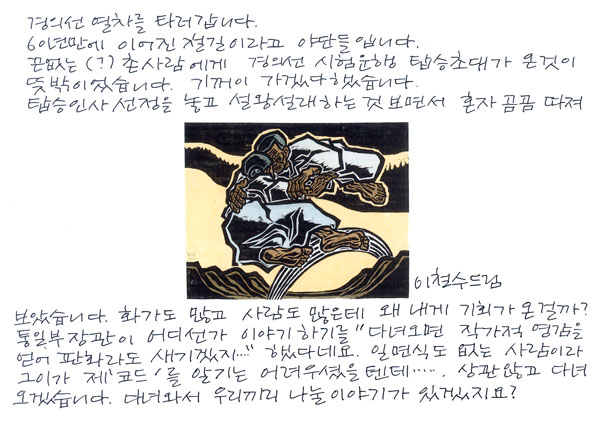 경의선 열차를 타러 갑니다.
6이년만에 이어진 철길이라고 야단들입니다.
끈없는(?) 촌사람에게 경의선 시험운행 탑승초대가 온것이
뜻밖이었습니다. 기꺼이 가겠다 했습니다.
탑승인사 선정을 놓고 설왕설래하는 것 보면서 혼자 곰곰 따져
이철수드림
보았습니다. 화가도 많고 사람도 많은데 왜 내게 기회가 온걸까?
통일부장관이 어디선가 이야기하기를 "다녀오면 작가적 영감을
얻어 판화라도 새기겠지..." 했다데요. 일면식도 없는 사람이라
그이가 제 '코드'를 알기는 어려우셨을텐데...... 상관않고 다녀
오겠습니다. 다녀와서 우리끼리 나눌 이야기가 있겠지요?